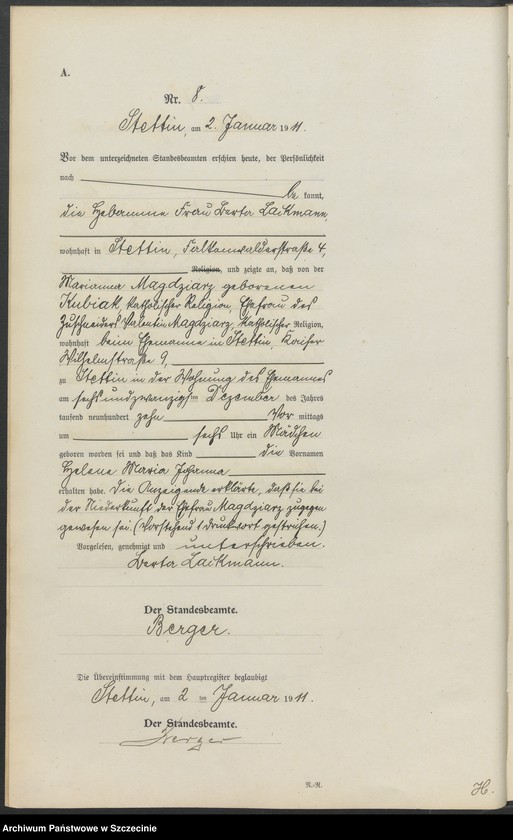 A.
Nr. 8.
Stettin, am 2. Januar 1911.
Vor dem unterzeichneten Standesbeamten erschien heute, der Persönlichkeit
nach be kannt,
die Hebamme Frau Berta Laikmann,
wohnhaft in Stettin, Falkenwalderstraße 4,
Religion, und zeigte an, daß von der
Marianna Magdziarz geborenen
Kubiak, katholischer Religion, Ehefrau des
Zuschneiders Valentin Magdziarz, katholischer Religion,
wohnhaft beim Ehemanne in Stettin, Kaiser
Wilhelmstraße 9,
zu Stettin in der Wohnung des Ehemannes
am sechsundzwanzigsten Dezember des Jahres
tausend neunhundert zehn Vor mittags
um sechs Uhr ein Mädchen
geboren worden sei und daß das Kind die Vornamen
Helene Maria Johanna
erhalten habe. Die Anzeigende erklärte, daß sie bei
der Niederkunft der Ehefrau Magdziarz zugegen
gewesen sei. (Vorstehend 1 Druckwort gestrichen.)
Vorgelesen, genehmigt und unterschrieben.
Berta Laikmann.
Der Standesbeamte.
Berger.
Die Übereinstimmung mit dem Hauptregister beglaubigt
Stettin, am 2 ten Januar 1911.
Der Standesbeamte.
Berger
N.-R.
H.
Archiwum Państwowe w Szczecinie